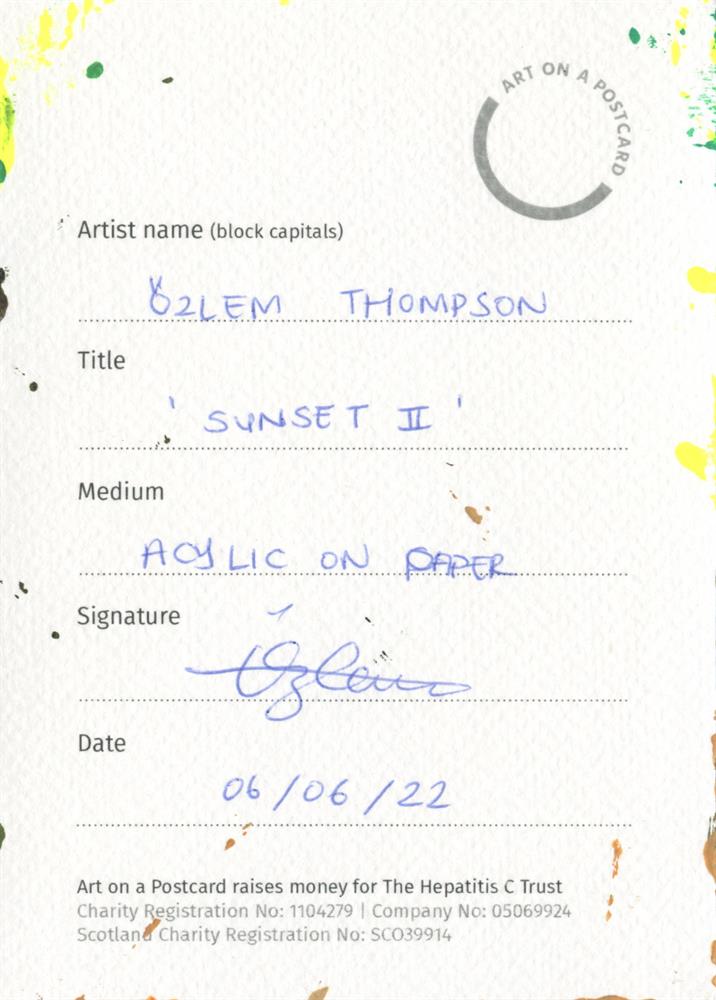 ART ON A POSTCARD
Artist name (block capitals)
ÖZLEM THOMPSON
Title
' SUNSET II '
Medium
ACYLIC ON PAPER
Signature
Özlem
Date
06/06/22
Art on a Postcard raises money for The Hepatitis C Trust
Charity Registration No: 1104279 | Company No: 05069924
Scotland Charity Registration No: SC039914